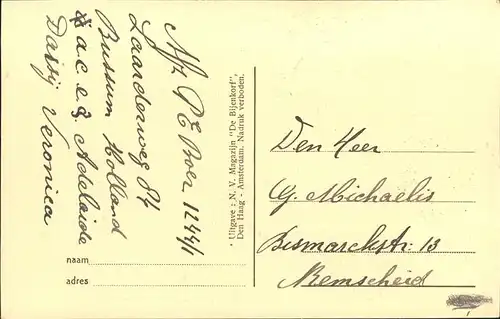 Afz P E Boer 1244/1
Laarderweg 84
Bussum Holland
a.c.e.g. Adelaide
Dassij Veronica
naam
adres
* Uitgave : N. V. Magazijn "De Bijenkorf",
Den Haag - Amsterdam. Nadruk verboden.
Den Heer
G. Michaelis
Bismarckstr. 13
Remscheid